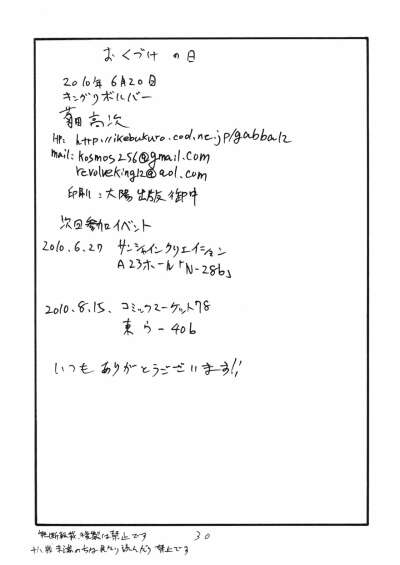 おくづけ の日
2010年 6月20日
キングリボルバー
菊田 高次
HP: http://ikebukuro.cool.ne.jp/gabba12
mail: kosmos256@gmail.com
revolveking12@aol.com
印刷：太陽出版御中
次回参加イベント
2010.6.27 サンシャインクリエイション
A23ホール「N-28b」
2010.8.15. コミックマーケット78
東 ら-40b
いつも ありがとうございます!!
無断転載、複製は禁止です 30
十八歳未満の方は見たり読んだり禁止です